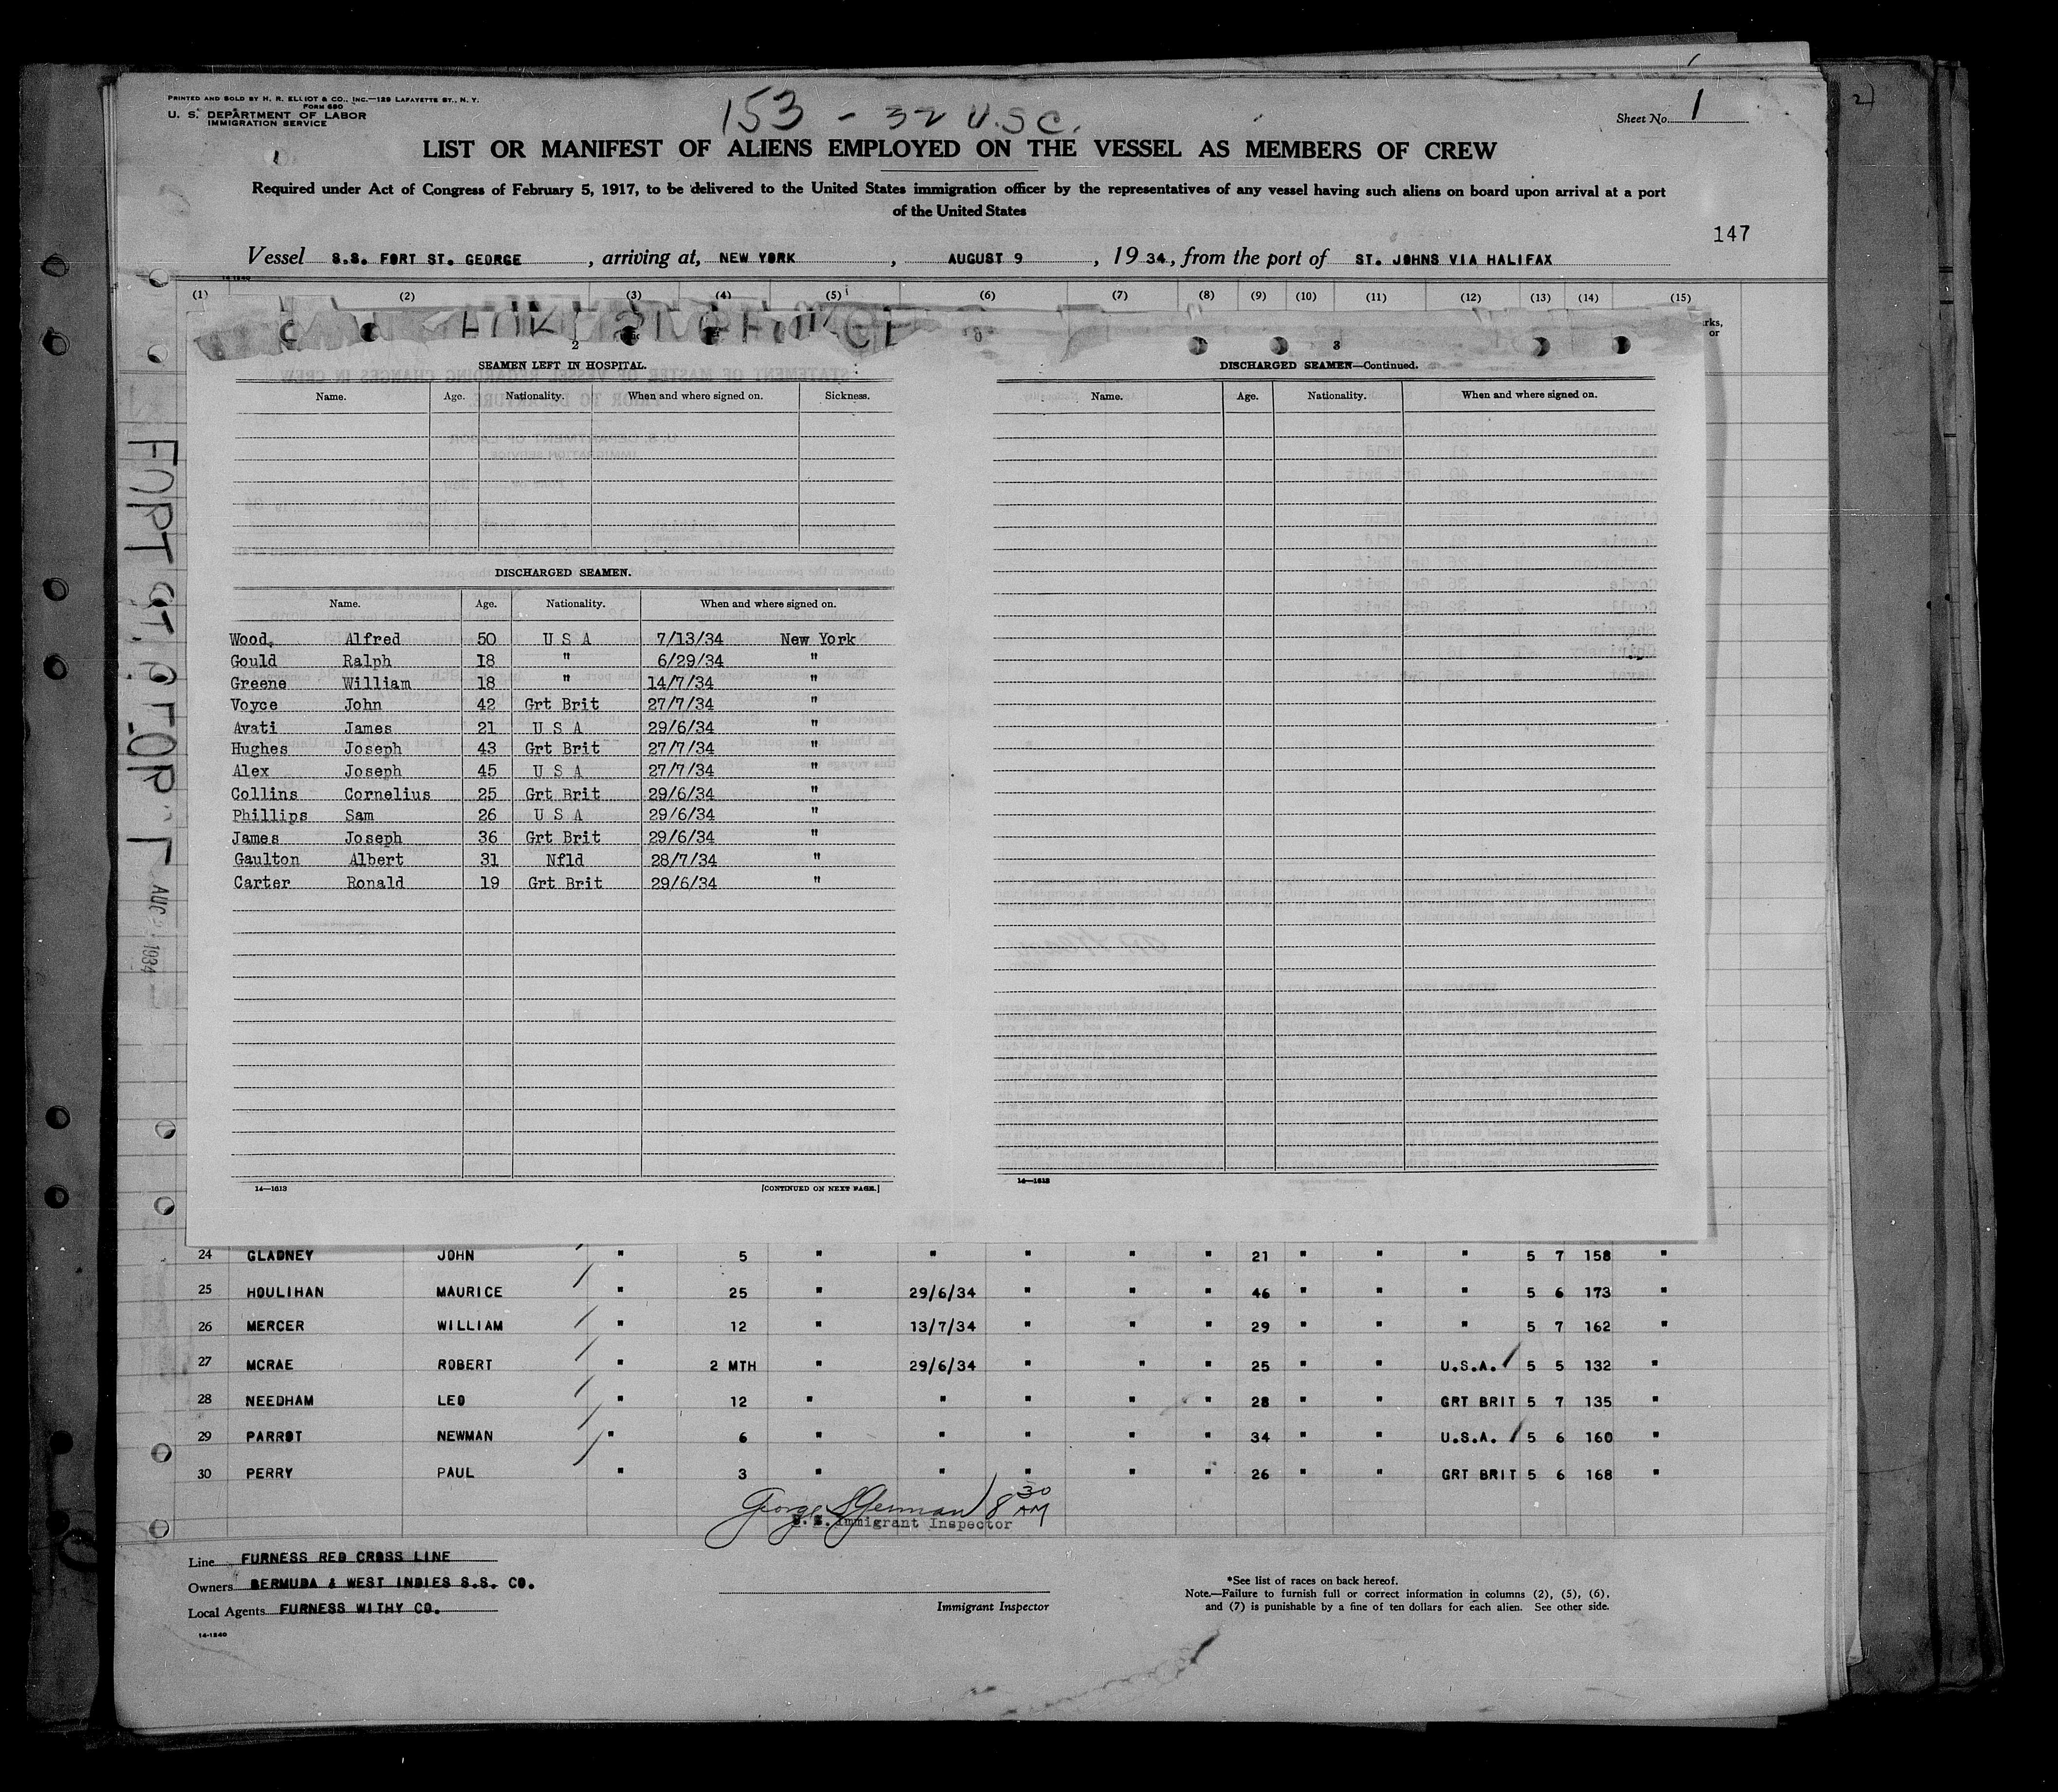 PRINTED AND SOLD BY H. R. ELLIOT & CO., INC.—129 LAFAYETTE ST., N. Y.
FORM 680
U. S. DEPARTMENT OF LABOR
IMMIGRATION SERVICE
153 - 32 U.S.C.
Sheet No. 1
LIST OR MANIFEST OF ALIENS EMPLOYED ON THE VESSEL AS MEMBERS OF CREW
Required under Act of Congress of February 5, 1917, to be delivered to the United States immigration officer by the representatives of any vessel having such aliens on board upon arrival at a port
of the United States
147
Vessel S.S. FORT ST. GEORGE, arriving at, NEW YORK, AUGUST 9, 1934, from the port of ST. JOHNS VIA HALIFAX
14-1240
(1) (2) (3) (4) (5) (6) (7) (8) (9) (10) (11) (12) (13) (14) (15)
rks,
or
2
SEAMEN LEFT IN HOSPITAL.
Name. Age. Nationality. When and where signed on. Sickness.
DISCHARGED SEAMEN.
Name. Age. Nationality. When and where signed on.
Wood, Alfred 50 U S A 7/13/34 New York
Gould Ralph 18 " 6/29/34 "
Greene William 18 " 14/7/34 "
Voyce John 42 Grt Brit 27/7/34 "
Avati James 21 U S A 29/6/34 "
Hughes Joseph 43 Grt Brit 27/7/34 "
Alex Joseph 45 U S A 27/7/34 "
Collins Cornelius 25 Grt Brit 29/6/34 "
Phillips Sam 26 U S A 29/6/34 "
James Joseph 36 Grt Brit 29/6/34 "
Gaulton Albert 31 Nfld 28/7/34 "
Carter Ronald 19 Grt Brit 29/6/34 "
14—1613 [CONTINUED ON NEXT PAGE.]
3
DISCHARGED SEAMEN—Continued.
Name. Age. Nationality. When and where signed on.
14—1613
24 GLADNEY JOHN " 5 " " " " " 21 " " " 5 7 158 "
25 HOULIHAN MAURICE " 25 " 29/6/34 " " " 46 " " " 5 6 173 "
26 MERCER WILLIAM " 12 " 13/7/34 " " " 29 " " " 5 7 162 "
27 MCRAE ROBERT " 2 MTH " 29/6/34 " " " 25 " " U.S.A. 5 5 132 "
28 NEEDHAM LEO " 12 " " " " " 28 " " GRT BRIT 5 7 135 "
29 PARROT NEWMAN " 6 " " " " " 34 " " U.S.A. 5 6 160 "
30 PERRY PAUL " 3 " " " " " 26 " " GRT BRIT 5 6 168 "
8 30 AM
U. S. Immigrant Inspector
Line FURNESS RED CROSS LINE
Owners BERMUDA & WEST INDIES S.S. CO.
Local Agents FURNESS WITHY CO.
14-1240
Immigrant Inspector
*See list of races on back hereof.
Note.—Failure to furnish full or correct information in columns (2), (5), (6),
and (7) is punishable by a fine of ten dollars for each alien. See other side.